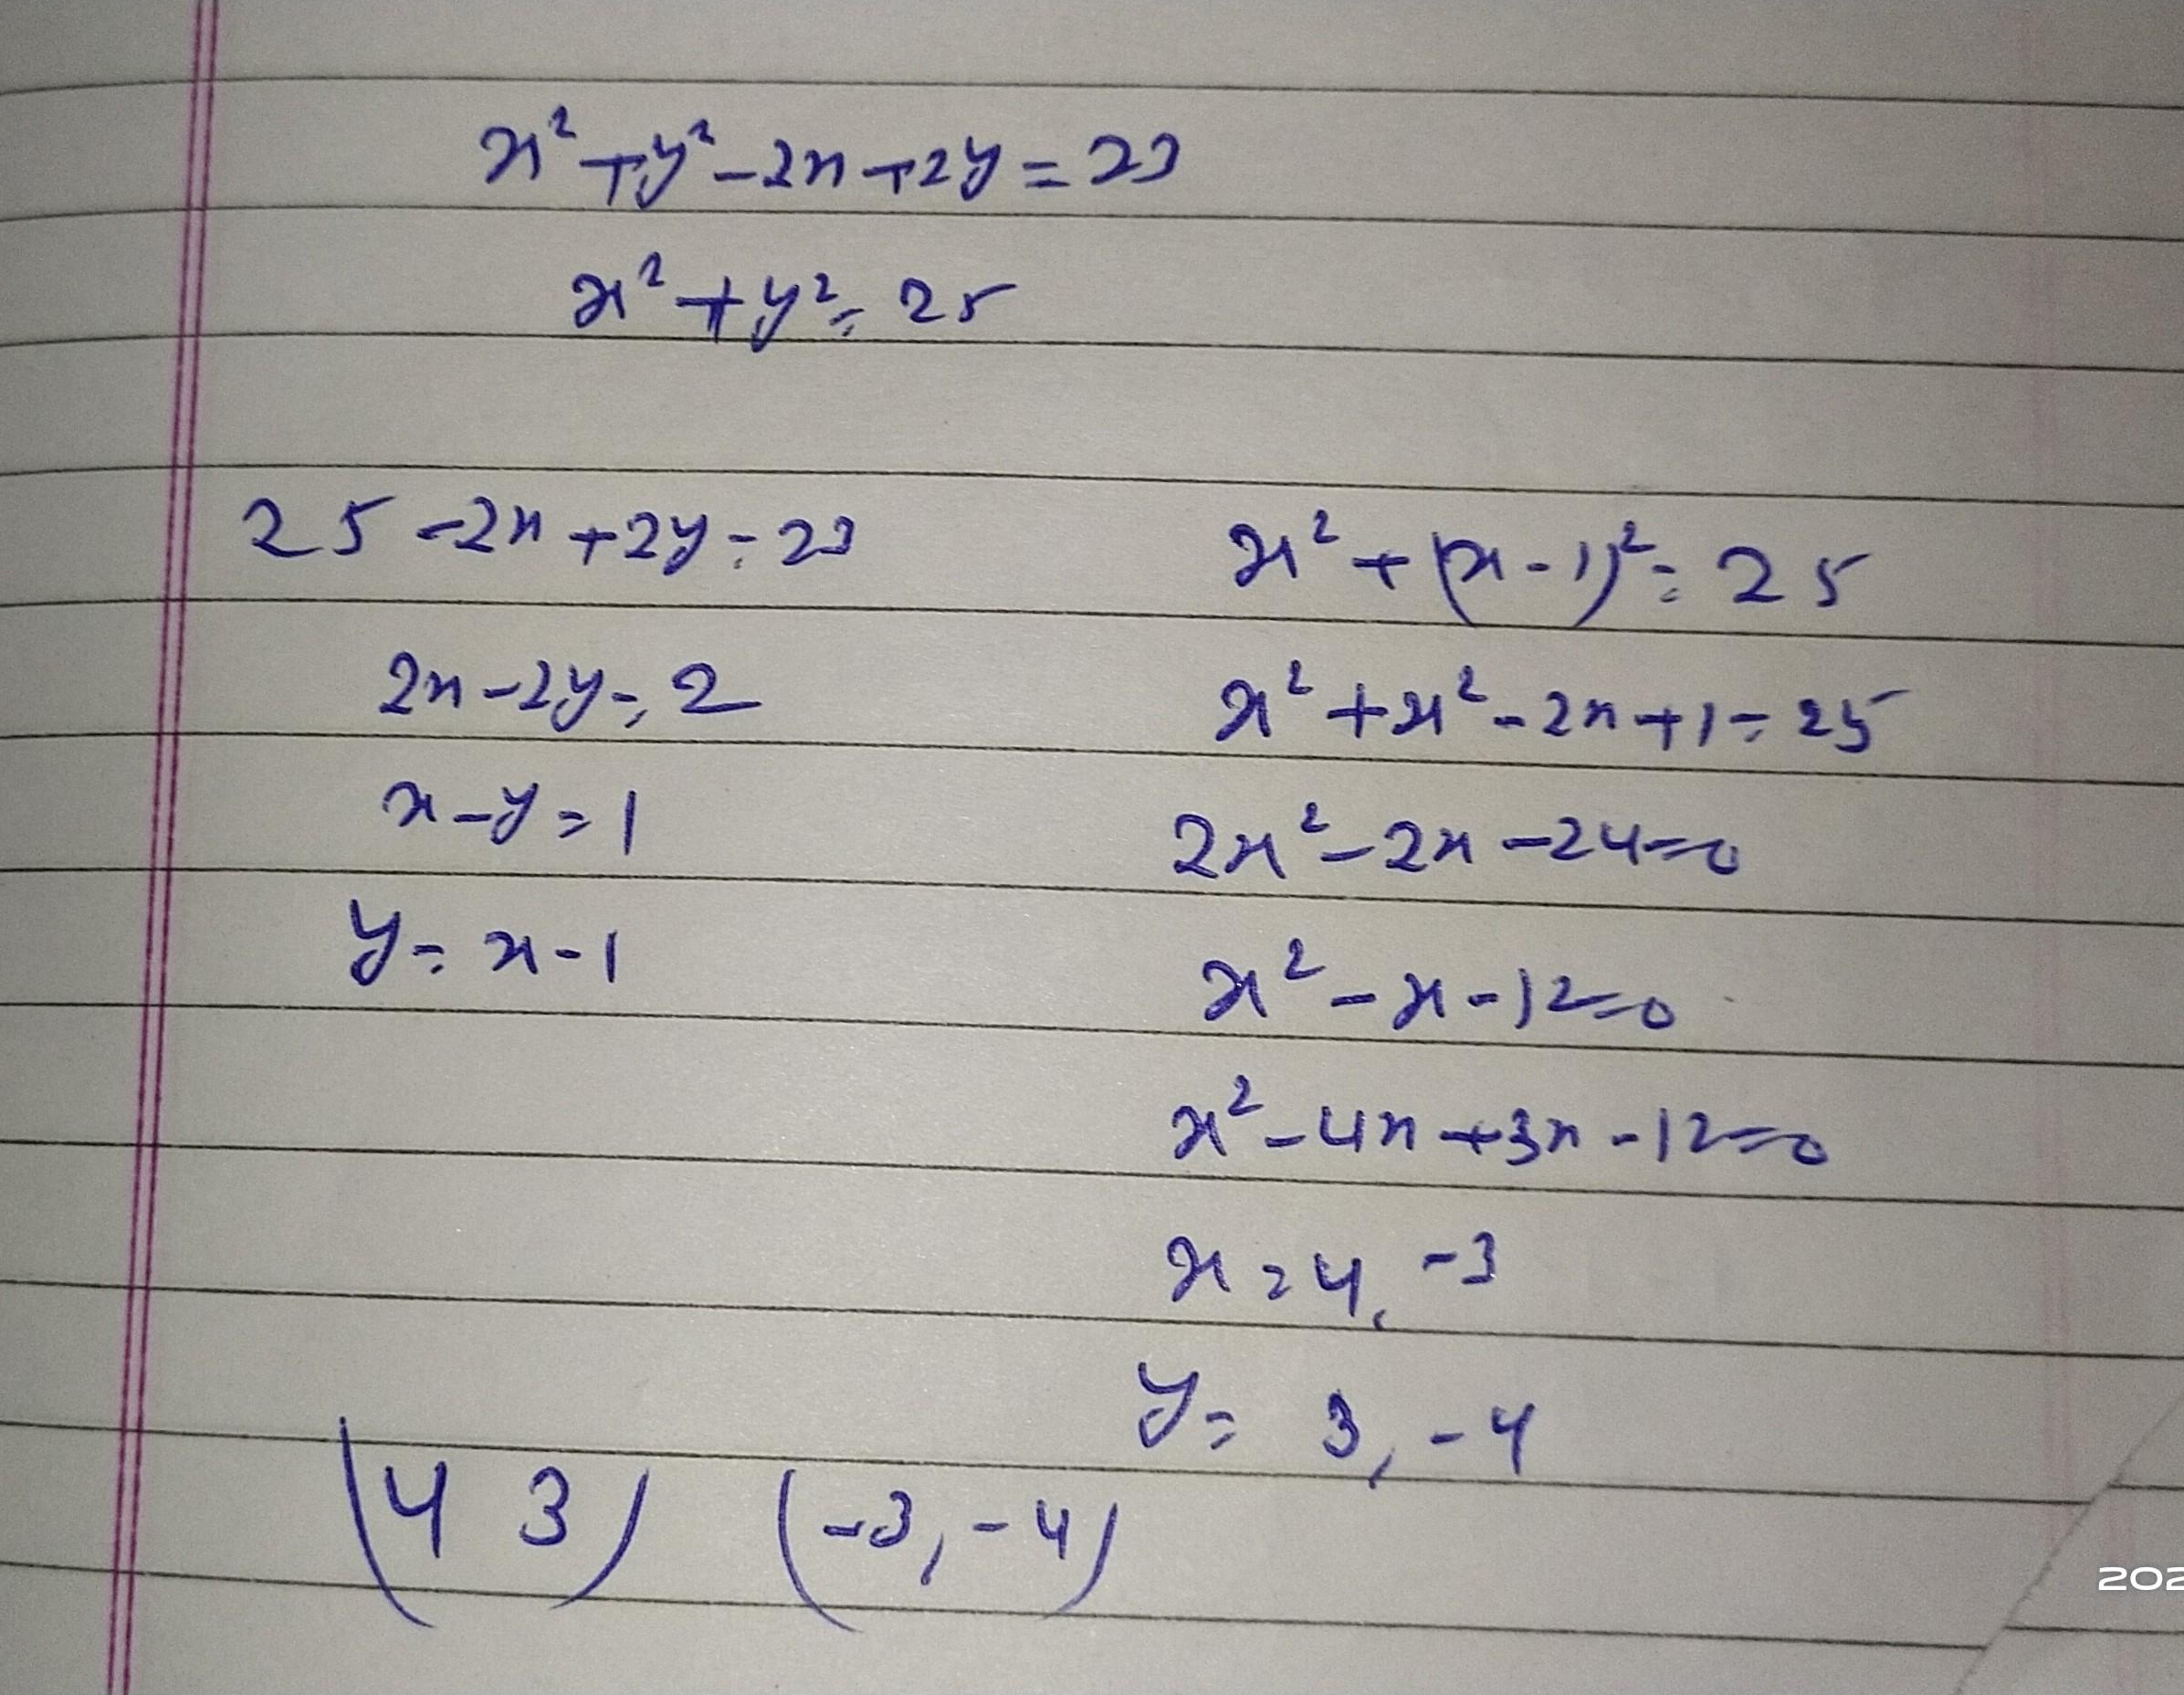 x² + y² - 2x + 2y = 23
x² + y² = 25
25 - 2x + 2y = 23
2x - 2y = 2
x - y = 1
y = x - 1
x² + (x - 1)² = 25
x² + x² - 2x + 1 = 25
2x² - 2x - 24 = 0
x² - x - 12 = 0
x² - 4x + 3x - 12 = 0
x = 4, -3
y = 3, -4
(4 3) (-3, -4)
202